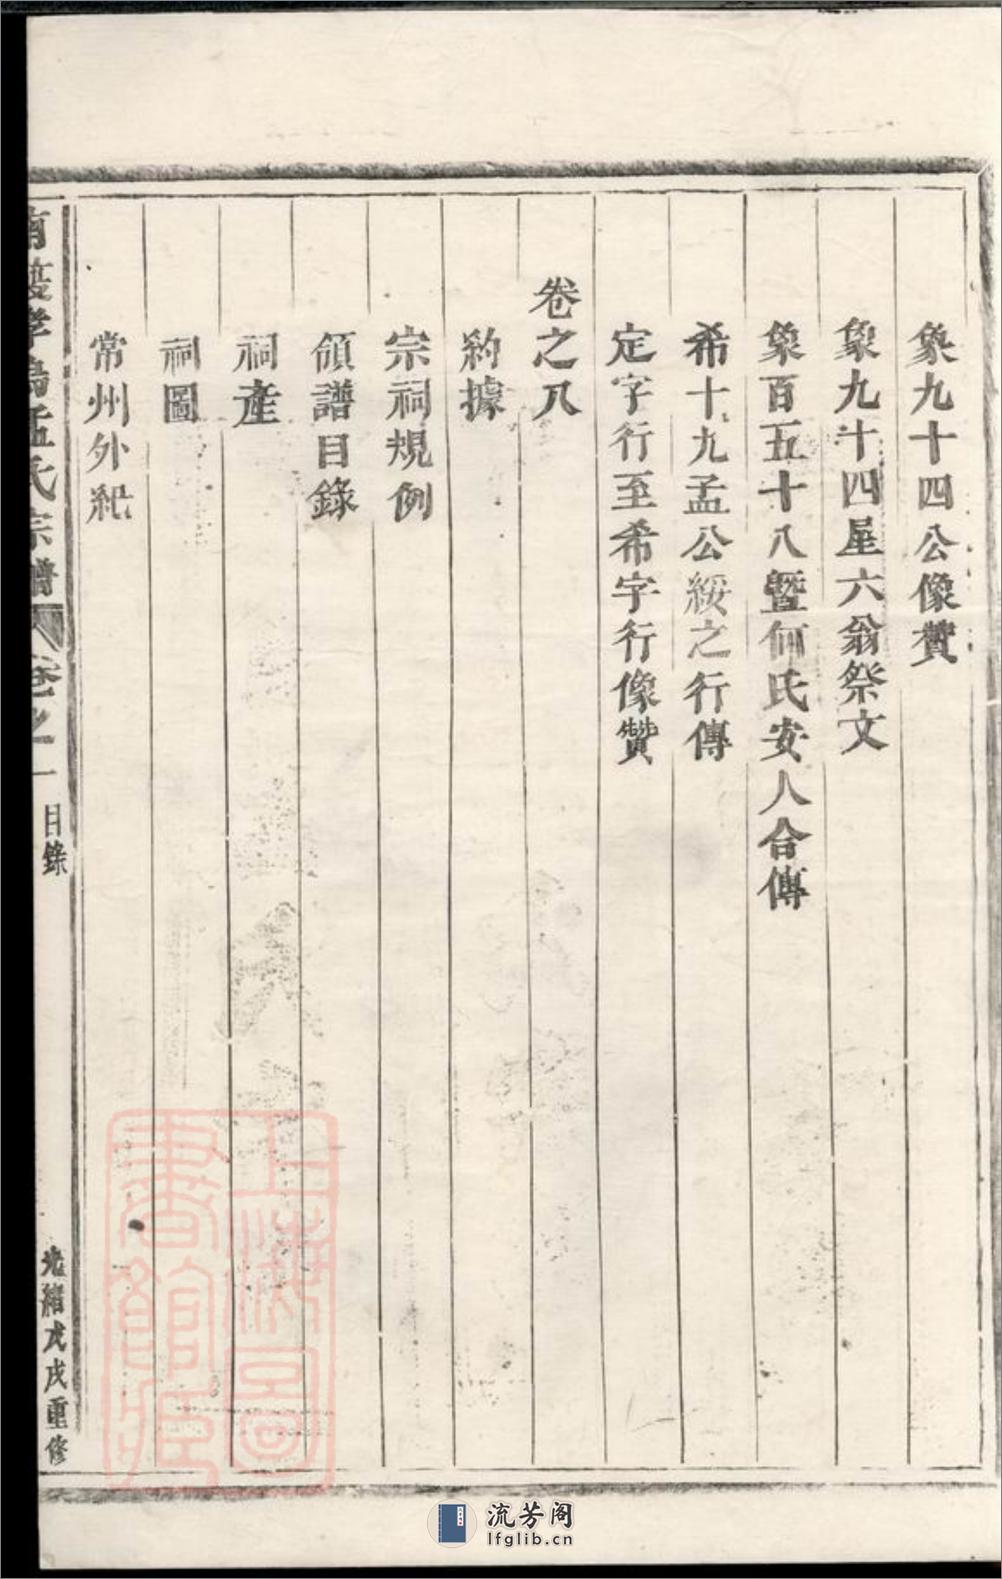 象九十四公像贊
象九十四星六翁祭文
象百五十八暨何氏安人合傳
希十九孟公綏之行傳
定字行至希字行像贊
卷之八
約據
宗祠規例
領譜目錄
祠產
祠圖
常州外紀
孟氏宗譜
卷之一
目錄
光緒戊戌重修
上海圖書館藏
流芳阁
lfglib.cn